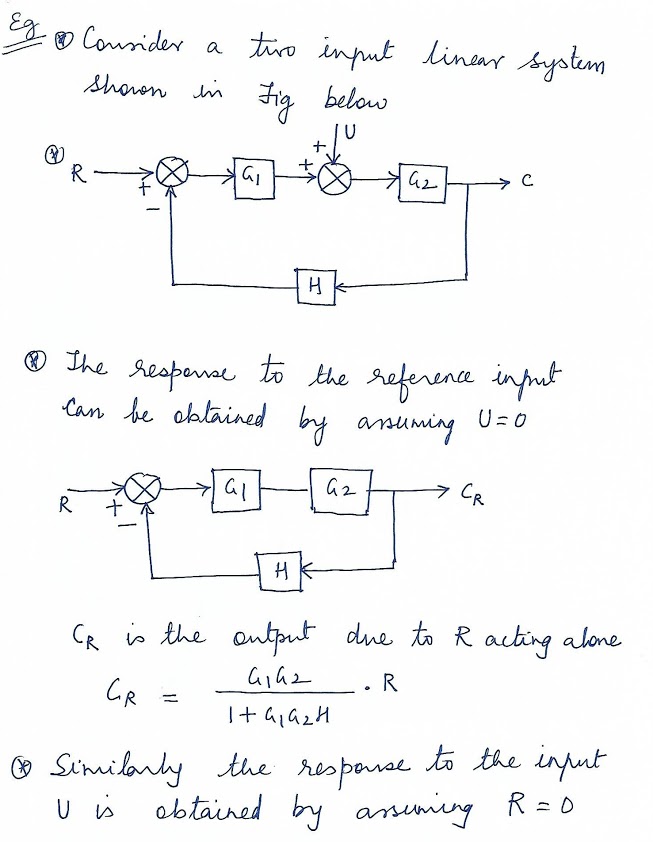 Eg
* Consider a two input linear system
shown in Fig below
*
+ U
R + G1 + G2 C
−
H
* The response to the reference input
can be obtained by assuming U=0
R + G1 G2 CR
−
H
CR is the output due to R acting alone
CR = G1G2 . R
1+G1G2H
* Similarly the response to the input
U is obtained by assuming R=0